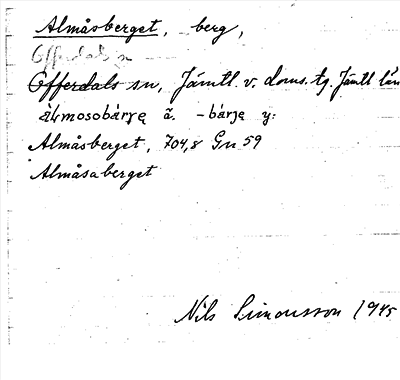 Almåsberget, berg,
Offerdals sn
Offerdals sn, Jämtl. v. doms. tg. Jämtl. län
Almåsberget, 704,8 Gn 59
Almåsaberget
Nils Simonsson 1945